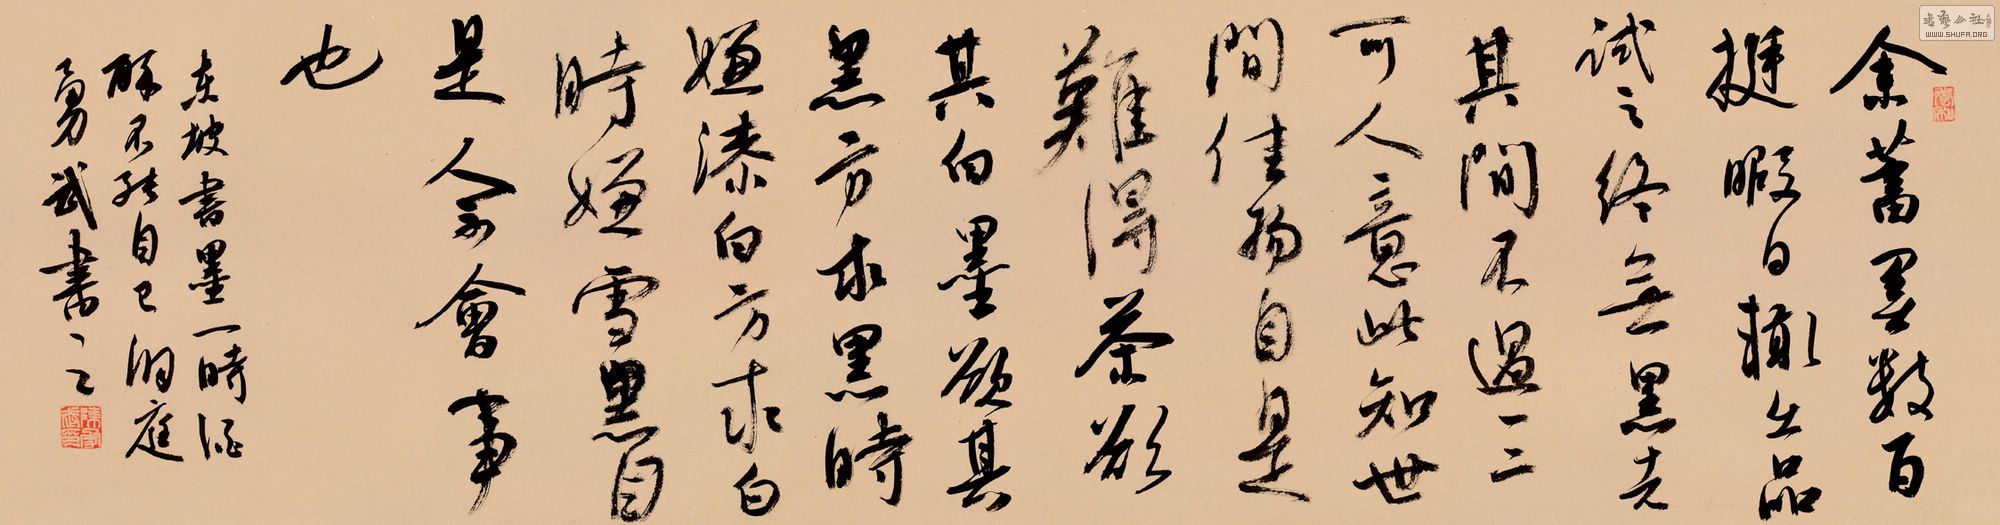 余蓄墨数百
挺暇日辄出品
试之终無黑者
其間不過一二
可人意此知世
間佳物自是
難得茶欲
其白墨欲其
黑方求黑時
嫌漆白方求白
時嫌雪黑自
是人不會事
也
东坡書墨一時
醉不能自已洞庭
勇武書之
書艺公社
WWW.SHUFA.ORG